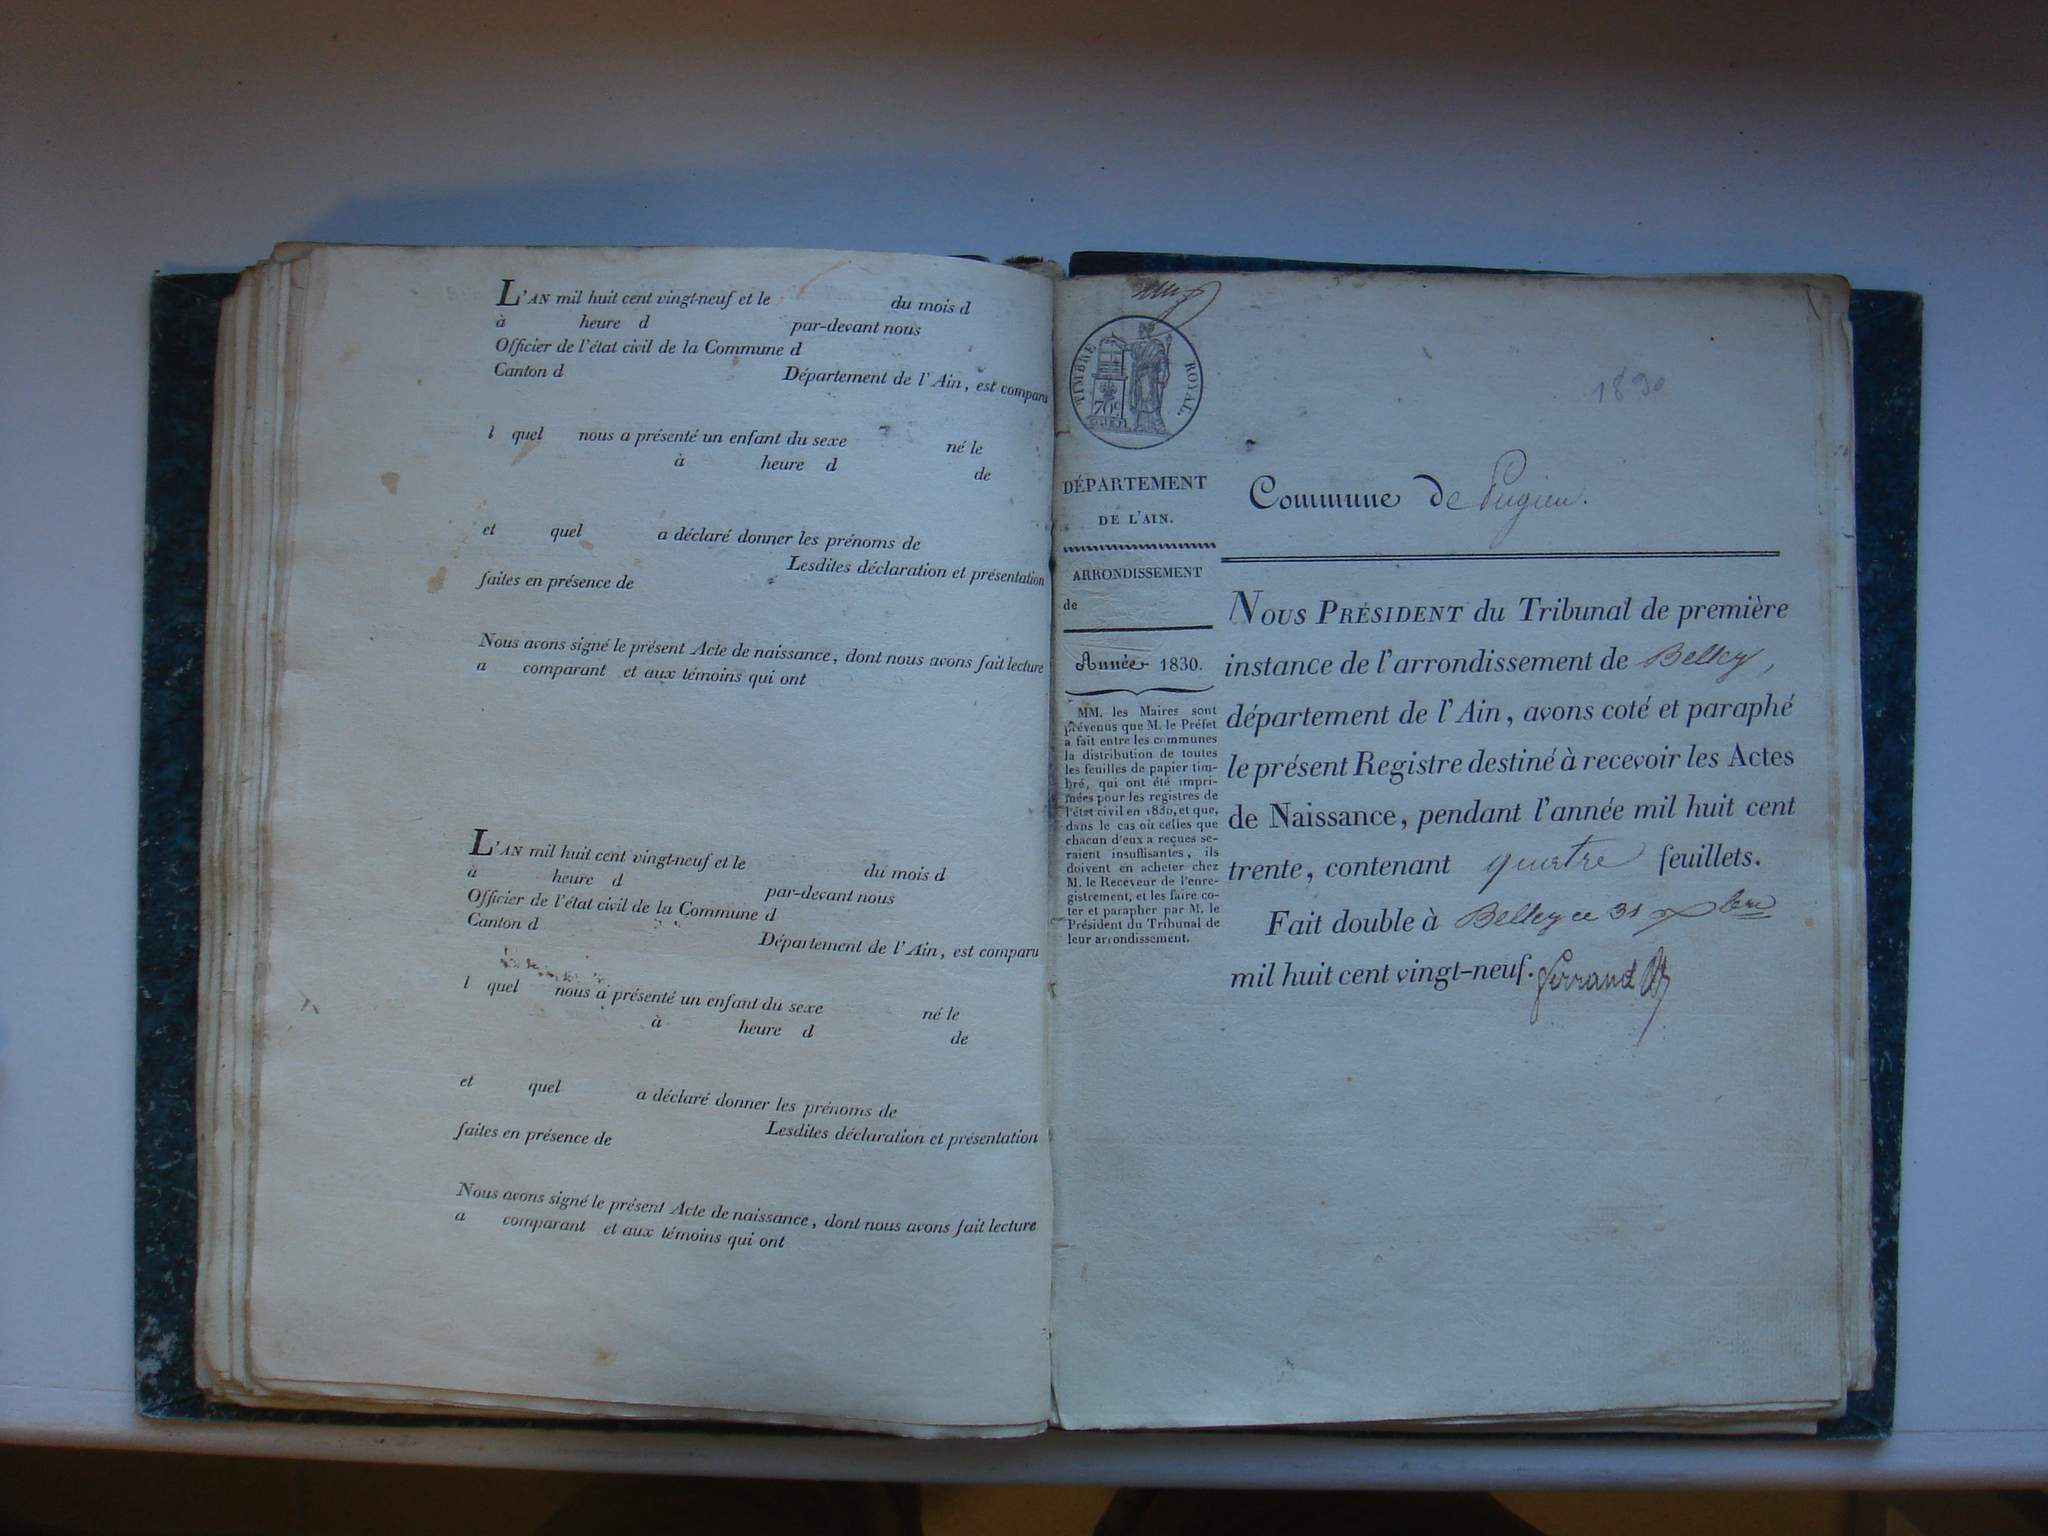 L'AN mil huit cent vingt-neuf et le du mois d
à heure d par-devant nous
Officier de l'état civil de la Commune d
Canton d Département de l'Ain, est comparu
l quel nous a présenté un enfant du sexe né le
à heure d de
et quel a déclaré donner les prénoms de
Lesdites déclaration et présentation
faites en présence de
Nous avons signé le présent Acte de naissance, dont nous avons fait lecture
a comparant et aux témoins qui ont
L'AN mil huit cent vingt-neuf et le du mois d
à heure d par-devant nous
Officier de l'état civil de la Commune d
Canton d Département de l'Ain, est comparu
l quel nous a présenté un enfant du sexe né le
à heure d de
et quel a déclaré donner les prénoms de
Lesdites déclaration et présentation
faites en présence de
Nous avons signé le présent Acte de naissance, dont nous avons fait lecture
a comparant et aux témoins qui ont
TIMBRE ROYAL.
70c
1830
DÉPARTEMENT
DE L'AIN.
ARRONDISSEMENT
de
Année 1830.
MM. les Maires sont
prévenus que M. le Préfet
a fait entre les communes
la distribution de toutes
les feuilles de papier tim-
bré, qui ont été impri-
mées pour les registres de
l'état civil en 1830, et que,
dans le cas où celles que
chacun d'eux a reçues se-
raient insuffisantes, ils
doivent en acheter chez
M. le Receveur de l'enre-
gistrement, et les faire co-
ter et parapher par M. le
Président du Tribunal de
leur arrondissement.
Commune de Pugieu.
NOUS PRÉSIDENT du Tribunal de première
instance de l'arrondissement de Belley,
département de l'Ain, avons coté et paraphé
le présent Registre destiné à recevoir les Actes
de Naissance, pendant l'année mil huit cent
trente, contenant quatre feuillets.
Fait double à Belley ce 31 Xbre
mil huit cent vingt-neuf. Ferrand